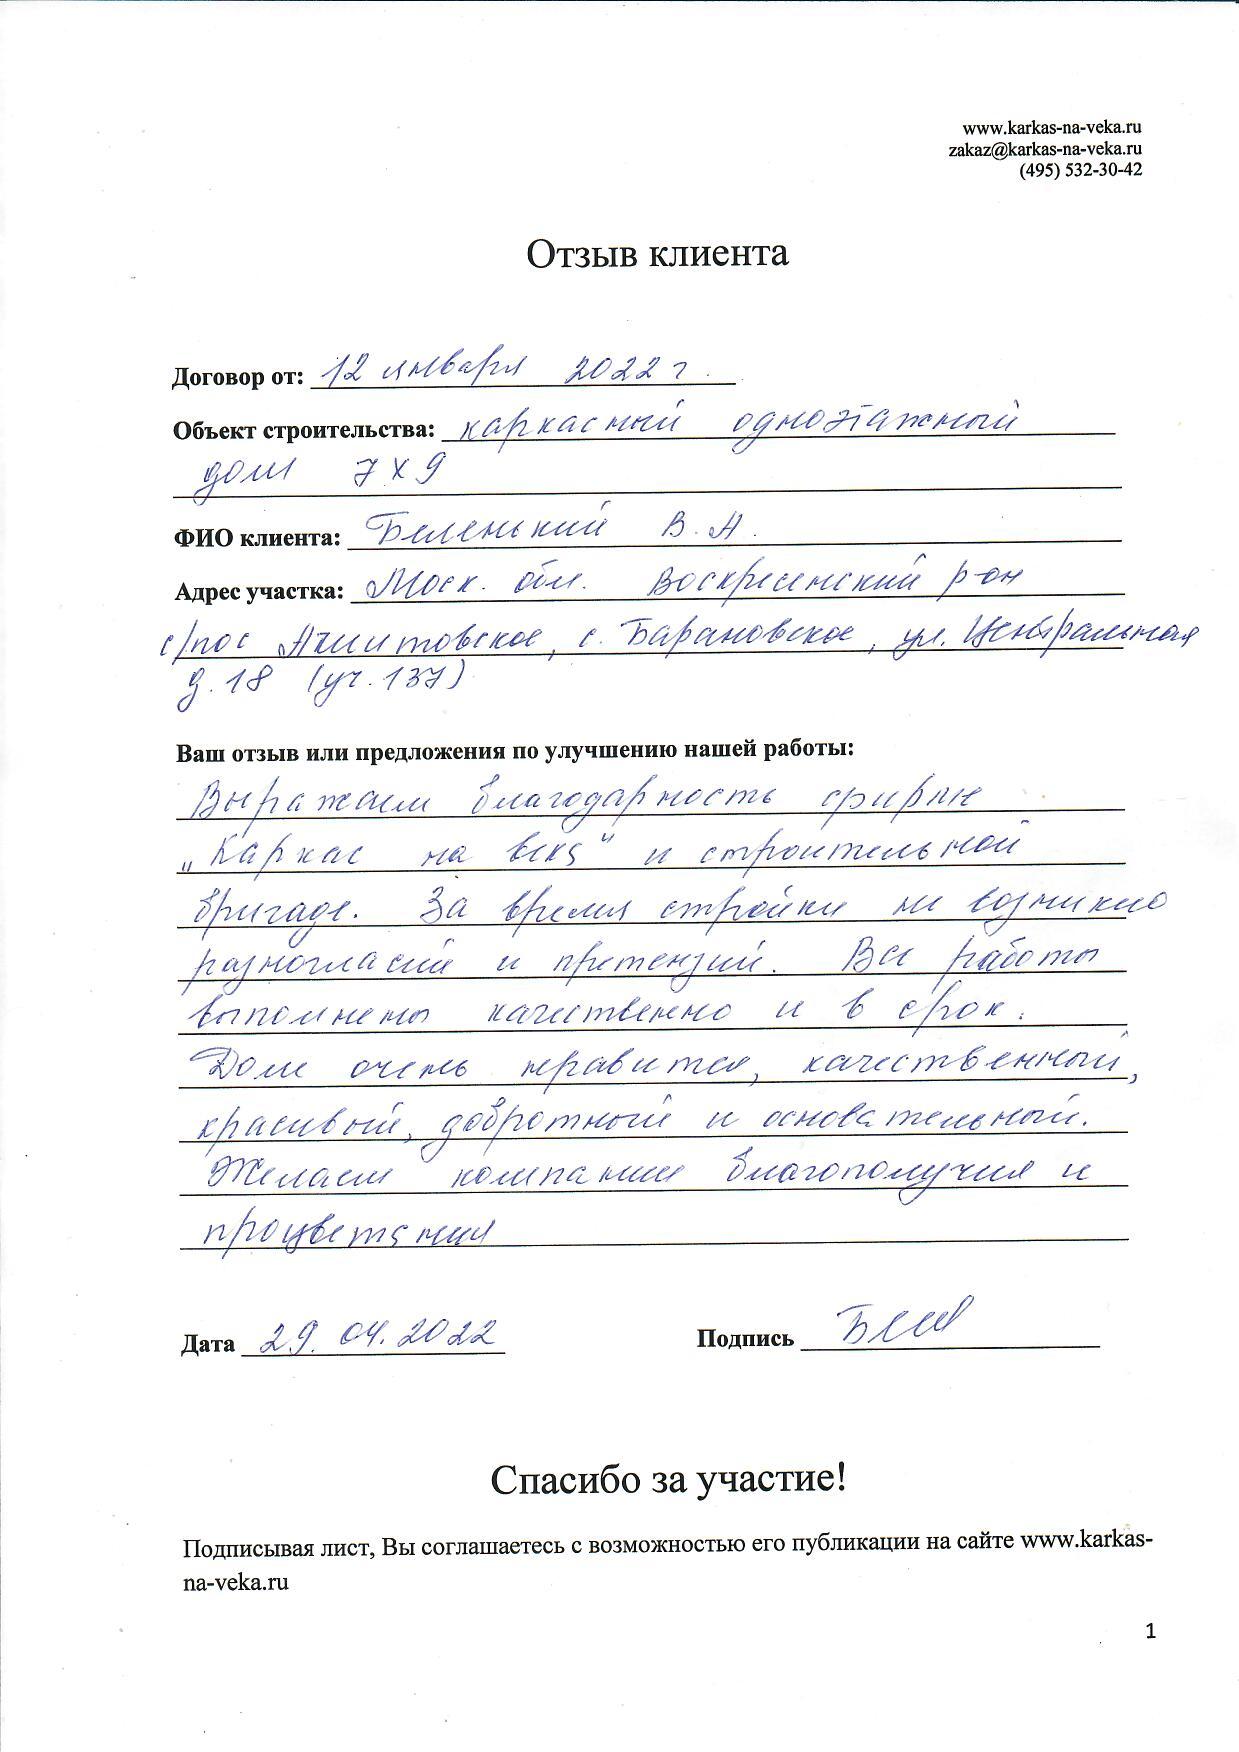 www.karkas-na-veka.ru
zakaz@karkas-na-veka.ru
(495) 532-30-42
Отзыв клиента
Договор от: 12 января 2022 г.
Объект строительства: каркасный одноэтажный
дом 7х9
ФИО клиента: Беленький В.А.
Адрес участка: Моск. обл. Воскресенский р-он
с/пос Ашитовское, с. Барановское, ул. Центральная
д. 18 (уч. 137)
Ваш отзыв или предложения по улучшению нашей работы:
Выражаем благодарность фирме
„Каркас на века" и строительной
бригаде. За время стройки не возникло
разногласий и претензий. Все работы
выполнены качественно и в срок.
Дом очень нравится, качественный,
красивый, добротный и основательный.
Желаем компании благополучия и
процветания
Дата 29.04.2022 Подпись
Спасибо за участие!
Подписывая лист, Вы соглашаетесь с возможностью его публикации на сайте www.karkas-
na-veka.ru
1